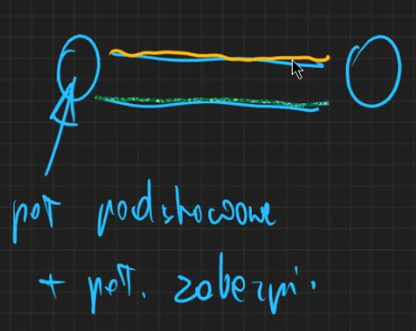 pot podstawowe
+ pot. zabezpi.